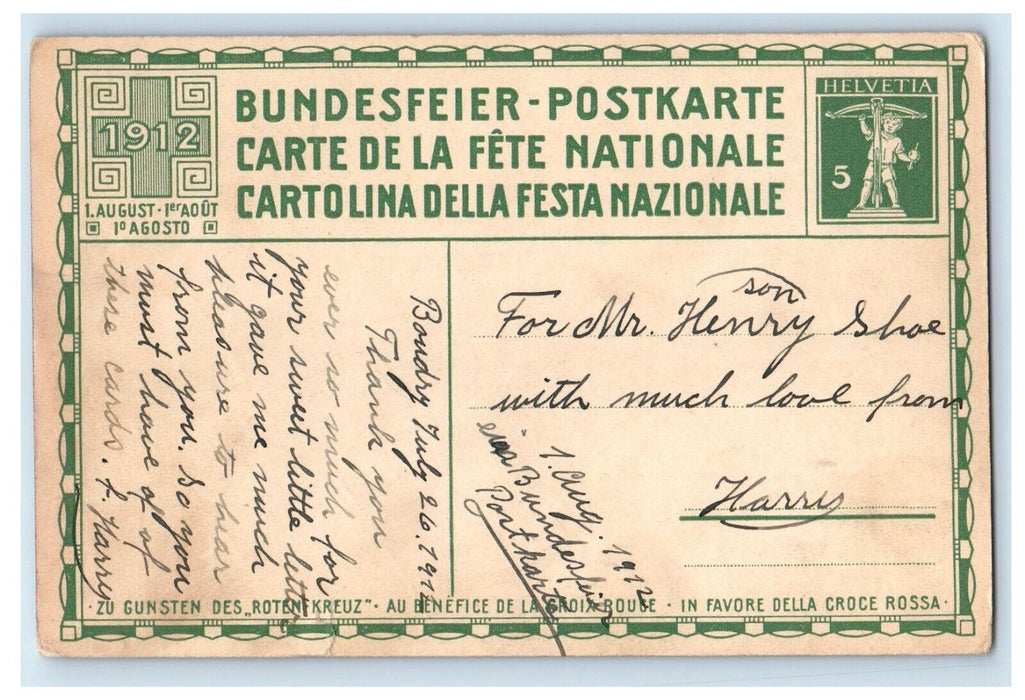 1912
1. AUGUST · 1er AOÛT
1º AGOSTO
BUNDESFEIER - POSTKARTE
CARTE DE LA FÊTE NATIONALE
CARTOLINA DELLA FESTA NAZIONALE
HELVETIA
5
Boudry July 26. 1912
Thank you
ever so much for
your sweet little letter
it gave me much
pleasure to hear
from you. So you
must have of
these cards. Harry
son
For Mr. Henry Shoe
with much love from
Harry
1. Aug. 1912
Bundesfeier
Postkarte
· ZU GUNSTEN DES „ROTEN KREUZ" · AU BÉNÉFICE DE LA CROIX-ROUGE · IN FAVORE DELLA CROCE ROSSA ·